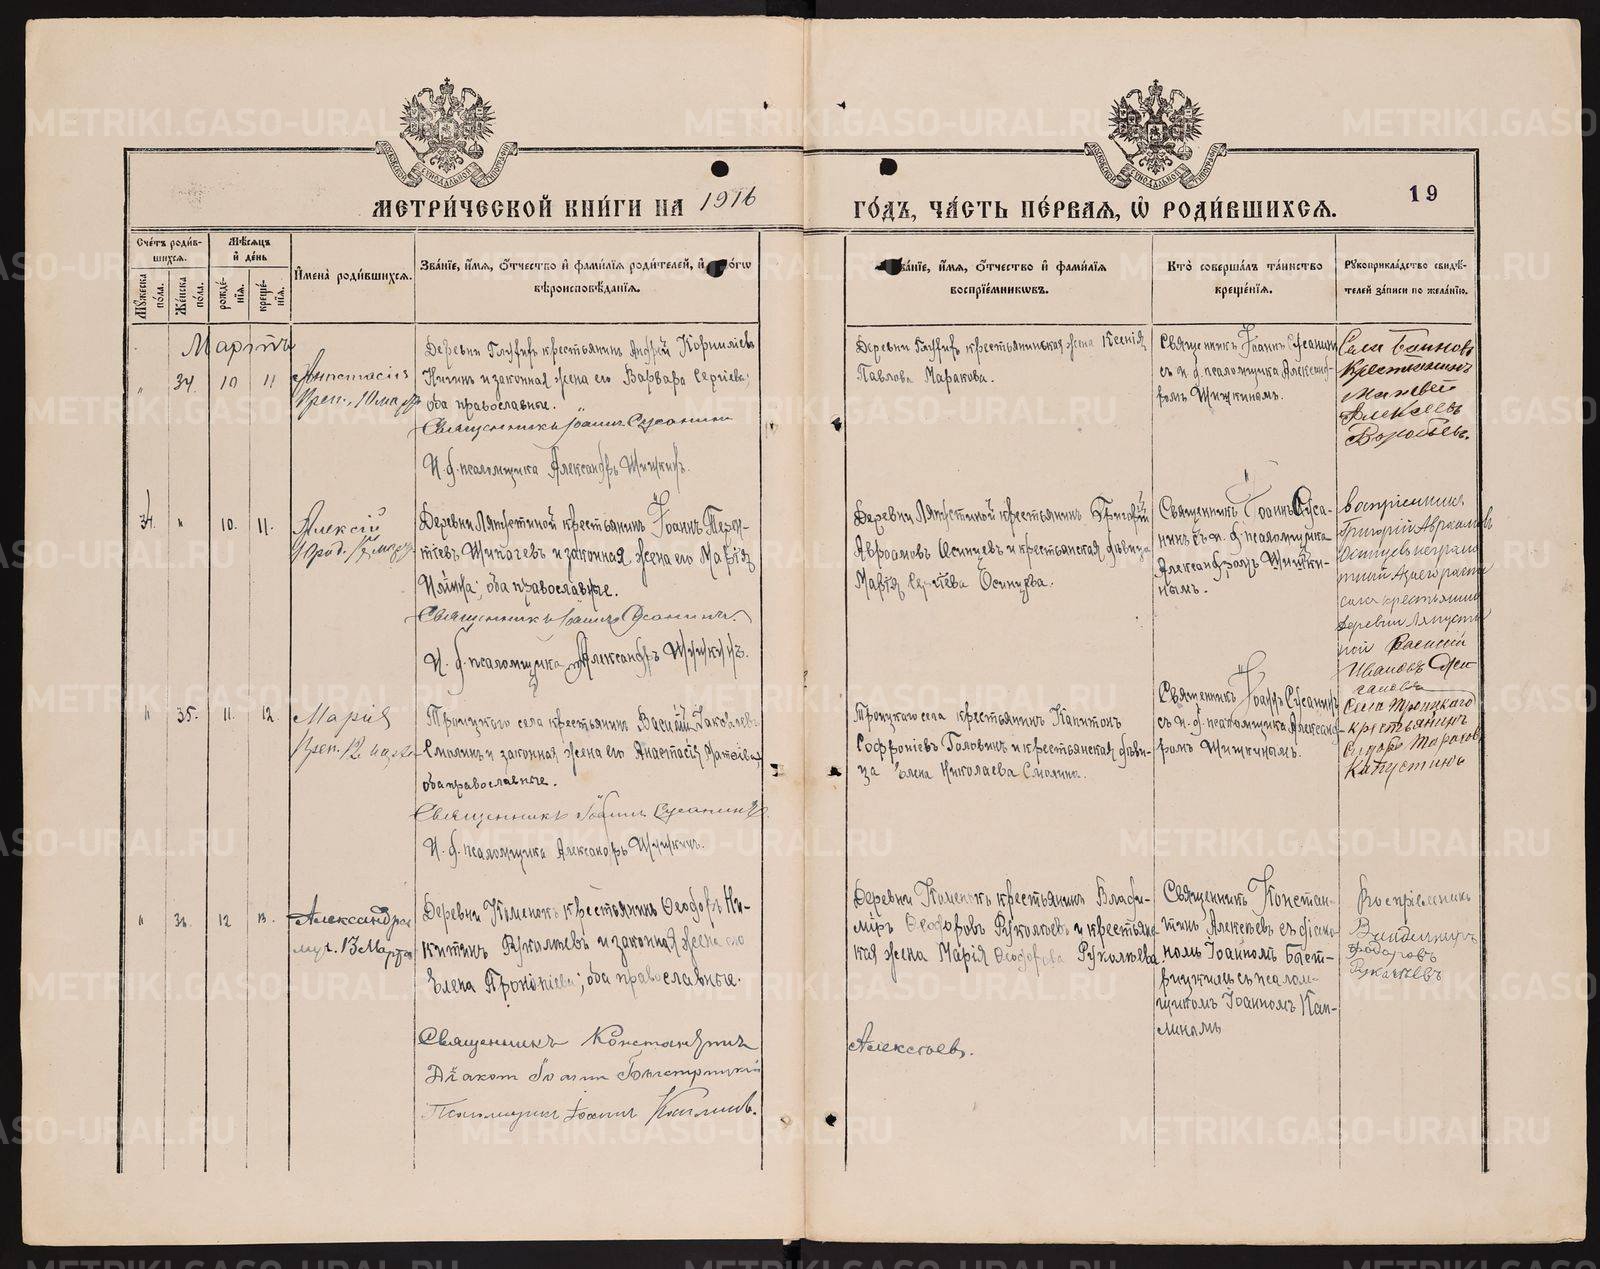 МЕТРИ́ЧЕСКОЙ КНИ́ГИ НА 1916 ГО́ДЪ, ЧА́СТЬ ПЕ́РВАЯ, Ѡ҆ РОДИ́ВШИХСЯ.
19
Сче́тъ роди́в-
шихся.
Мѣ́сяцъ
и҆ де́нь
Мꙋ́жеска по́ла.
Же́нска по́ла.
рожде́-
нїя.
креще́-
нїя.
И҆мена̀ роди́вшихся.
Зва́нїе, и҆́мя, ѻ҆́тчество и҆ фами́лїя роди́телей, и҆
вѣроисповѣ́данїя.
Зва́нїе, и҆́мя, ѻ҆́тчество и҆ фами́лїя
воспрїе́мниковъ.
Кто̀ соверша́лъ та́инство
креще́нїя.
Рꙋкоприкла́дство свидѣ́-
телей за́писи по жела́нїю.
Мартъ
" 34. 10 11
Анастасія
Преп. 10 марта
Деревни Глухихъ крестьянинъ Андрей Корниліевъ
и законная жена его Варвара Сергіева;
оба православные.
Священникъ Іоаннъ Сусанинъ
И. д. псаломщика Александръ Шишкинъ.
Деревни Глухихъ крестьянская жена Ксенія
Павлова Маракова.
Священникъ Іоаннъ Сусанин
съ и. д. псаломщика Александ-
ромъ Шишкинымъ.
Села
Крестьянинъ
Матвей
Алексеевъ
Воробьевъ.
34. " 10. 11.
Алексій
Деревни Ляпустиной крестьянинъ Іоаннъ Терен-
тіевъ и законная жена его Марія
оба православные.
Священникъ Іоаннъ Сусанинъ.
И. д. псаломщика Александръ Шишкинъ.
Деревни Ляпустиной крестьянинъ Григорій
Авраамовъ Осинцевъ и крестьянская дѣвица
Марія Сергѣева Осинцева.
Священникъ Іоаннъ Суса-
нинъ съ и. д. псаломщика
Александромъ Шишки-
нымъ.
Воспріемникъ
Григорій Авраамовъ
Осинцевъ неграмо
тный а за него распи
сался крестьянин
деревни Ляпусти
ной Василій
Ивановъ
" 35. 11. 12.
Марія
Преп. 12 марта
Троицкаго села крестьянинъ Василій Іаковлевъ
Смолинъ и законная жена его Анастасія Матѳіева,
оба православные.
Священникъ Іоаннъ Сусанинъ
И. д. псаломщика Александръ Шишкинъ.
Троицкаго села крестьянинъ Капитонъ
Софроніевъ Головинъ и крестьянская дѣви-
ца Елена Николаева Смолина.
Священникъ Іоаннъ Сусанинъ
съ и. д. псаломщика Александ-
ромъ Шишкинымъ.
Села Троицкаго
крестьянинъ
Сидоръ Тарасовъ
Капустинъ
" 36. 12 13.
Александра
муч. 13 Марта
Деревни Каменокъ крестьянинъ Ѳеодоръ Ни-
китинъ Рукалѣевъ и законная жена его
Елена Прокопіева; оба православные.
Священникъ Константинъ
Діаконъ Іоаннъ Быстрицкій
Псаломщикъ Іоаннъ Каплинъ.
Деревни Каменокъ крестьянинъ Влади-
міръ Ѳеодоровъ Рукалѣевъ и крестьянс
кая жена Марія Ѳеодорова Рукалѣева.
Алексѣевъ.
Священникъ Констан-
тинъ Алексѣевъ съ діако-
номъ Іоанномъ Быст-
рицкимъ съ псалом-
щикомъ Іоанномъ Кап-
линымъ
Воспріемникъ
Владимиръ
Федоровъ
Рукалѣевъ
METRIKI.GASO-URAL.RU